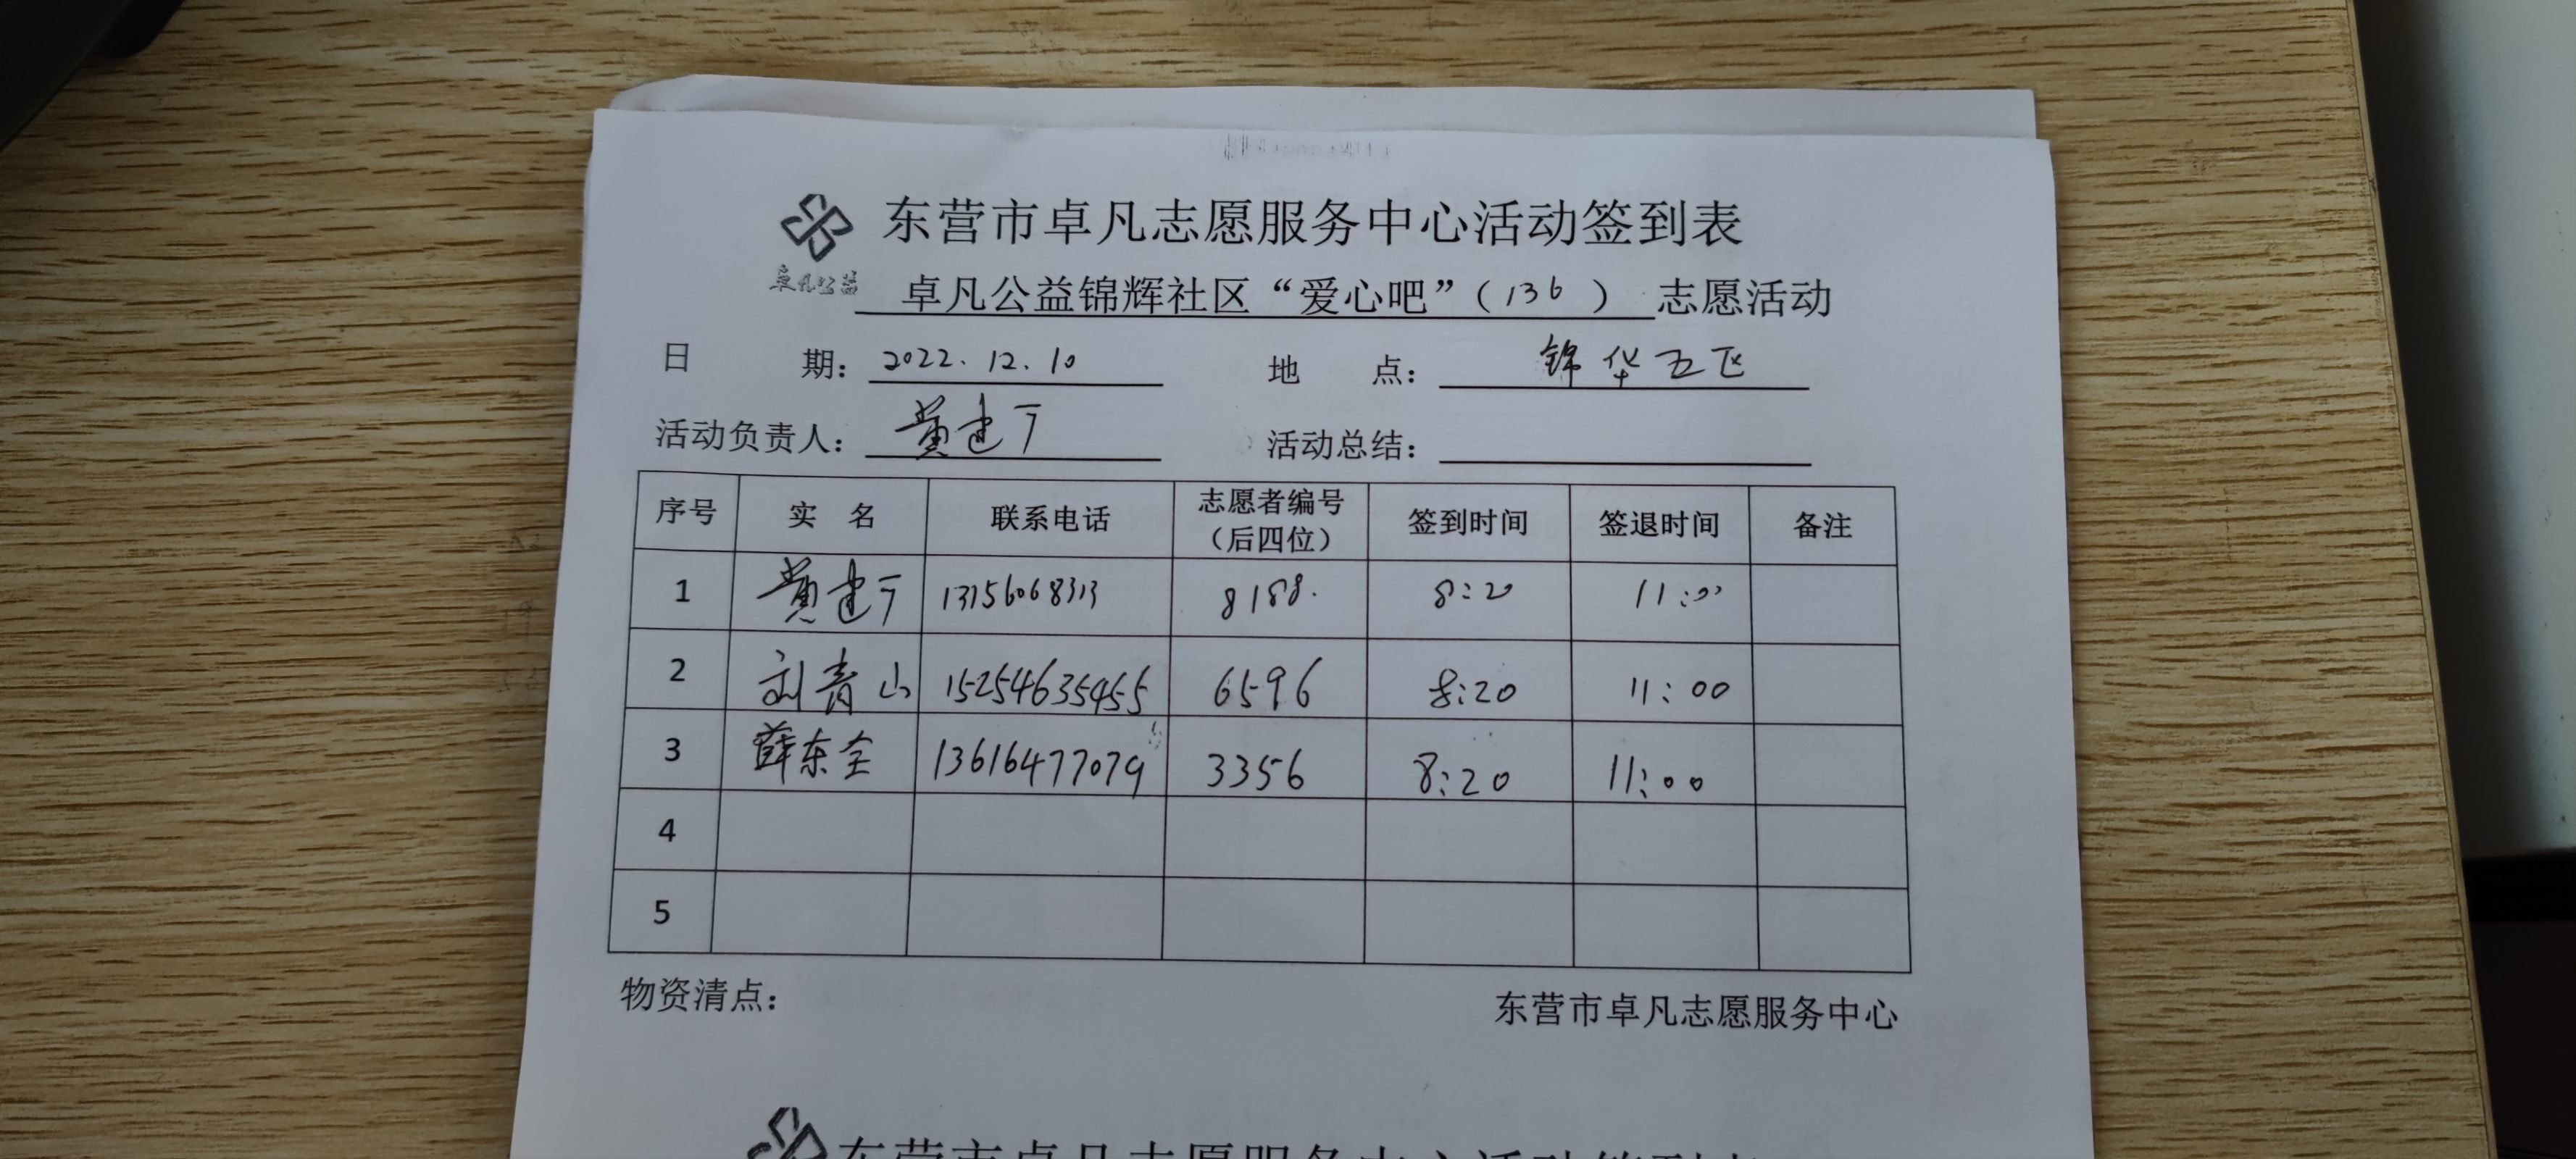 东营市卓凡志愿服务中心活动签到表
卓凡公益
卓凡公益锦辉社区“爱心吧”（136）志愿活动
日期：2022.12.10 地点：锦华五区
活动负责人：黄建 活动总结：
序号 实名 联系电话 志愿者编号（后四位） 签到时间 签退时间 备注
1 黄建 13156068313 8188. 8:20 11:00
2 刘青山 15254635455 6596 8:20 11:00
3 薛东全 13616477079 3356 8:20 11:00
4
5
物资清点： 东营市卓凡志愿服务中心
东营市卓凡志愿服务中心活动签到表